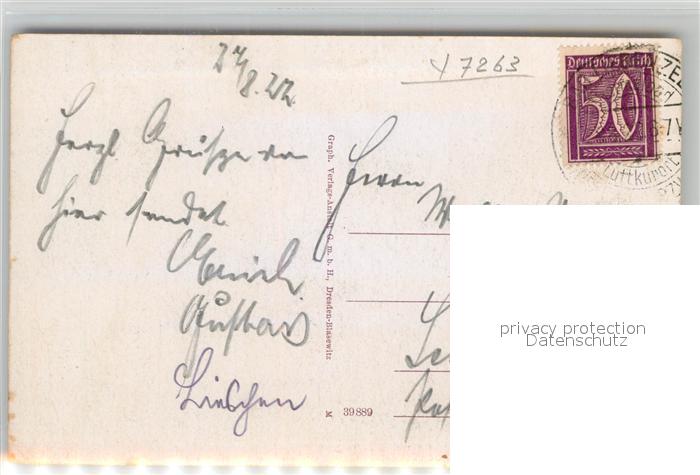 24/8.22.
Herzl Grüße von
hier sendet
Gustav
Lieschen
Graph. Verlags-Anstalt G. m. b. H., Dresden-Blasewitz
M 39889
7263
Herrn
Deutsches Reich
50
Luftkurort
privacy protection
Datenschutz